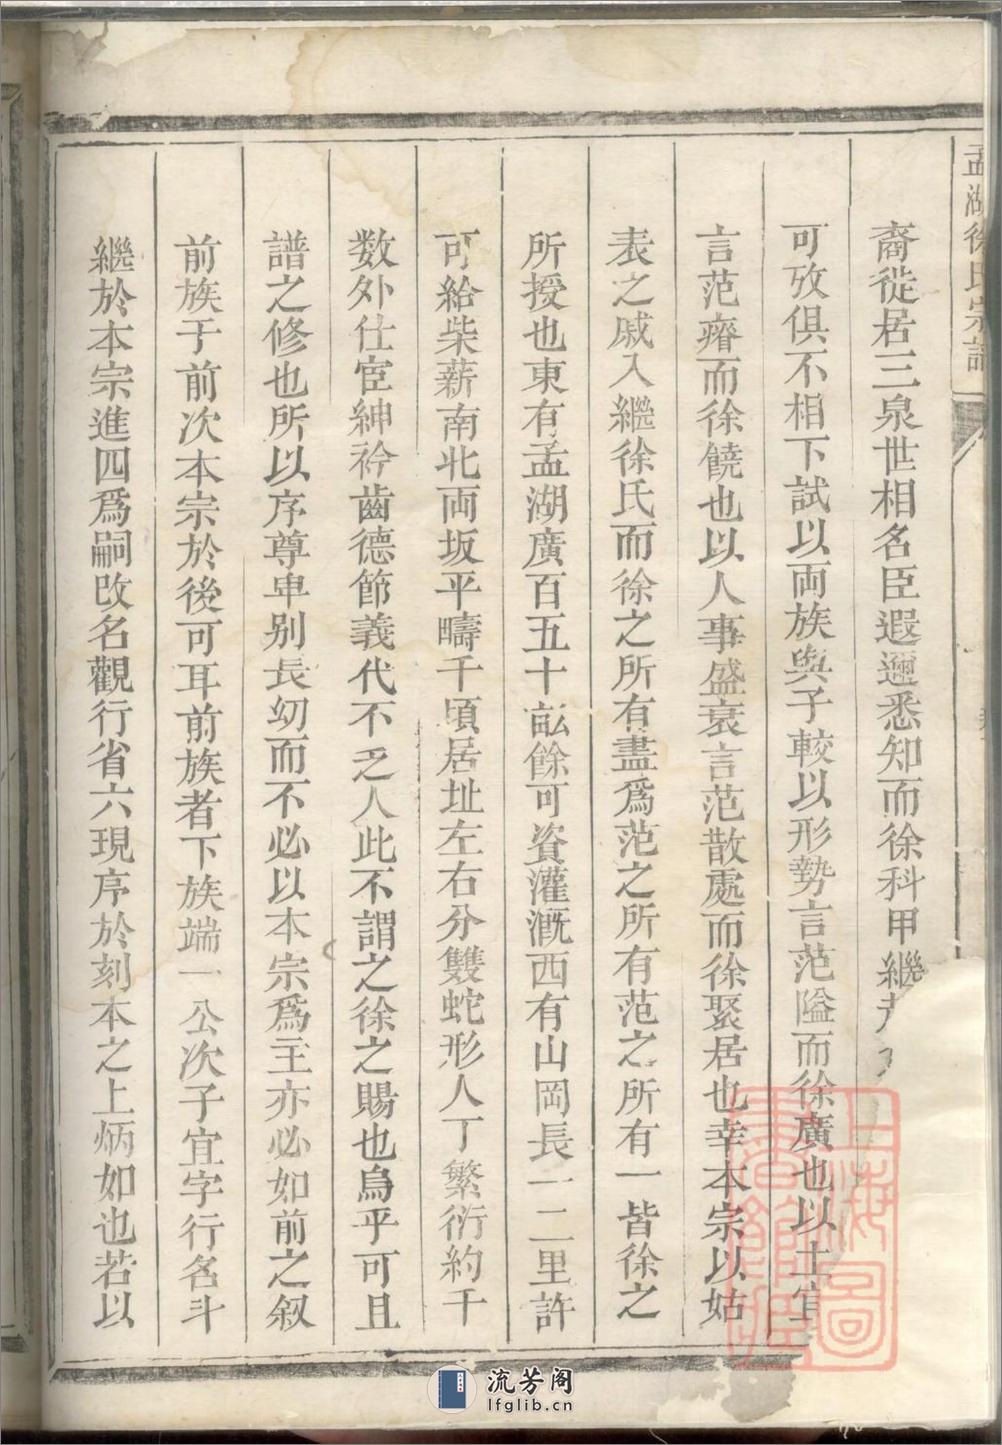 孟湖徐氏宗譜
裔徙居三泉世相名臣遐邇悉知而徐科甲繼
可攷俱不相下試以両族與子較以形勢言范隘而徐廣也以土宜
言范瘠而徐饒也以人事盛衰言范散處而徐聚居也幸本宗以姑
表之戚入繼徐氏而徐之所有盡爲范之所有范之所有一皆徐之
所授也東有孟湖廣百五十畝餘可資灌溉西有山岡長一二里許
可給柴薪南北両坂平疇千頃居址左右分雙蛇形人丁繁衍約千
数外仕宦紳衿齒德節義代不乏人此不謂之徐之賜也烏乎可且
譜之修也所以序尊卑别長幼而不必以本宗爲主亦必如前之叙
前族于前次本宗於後可耳前族者下族端一公次子宜字行名斗
繼於本宗進四爲嗣改名觀行省六現序於刻本之上炳如也若以
上海圖書館藏
流芳阁
lfglib.cn